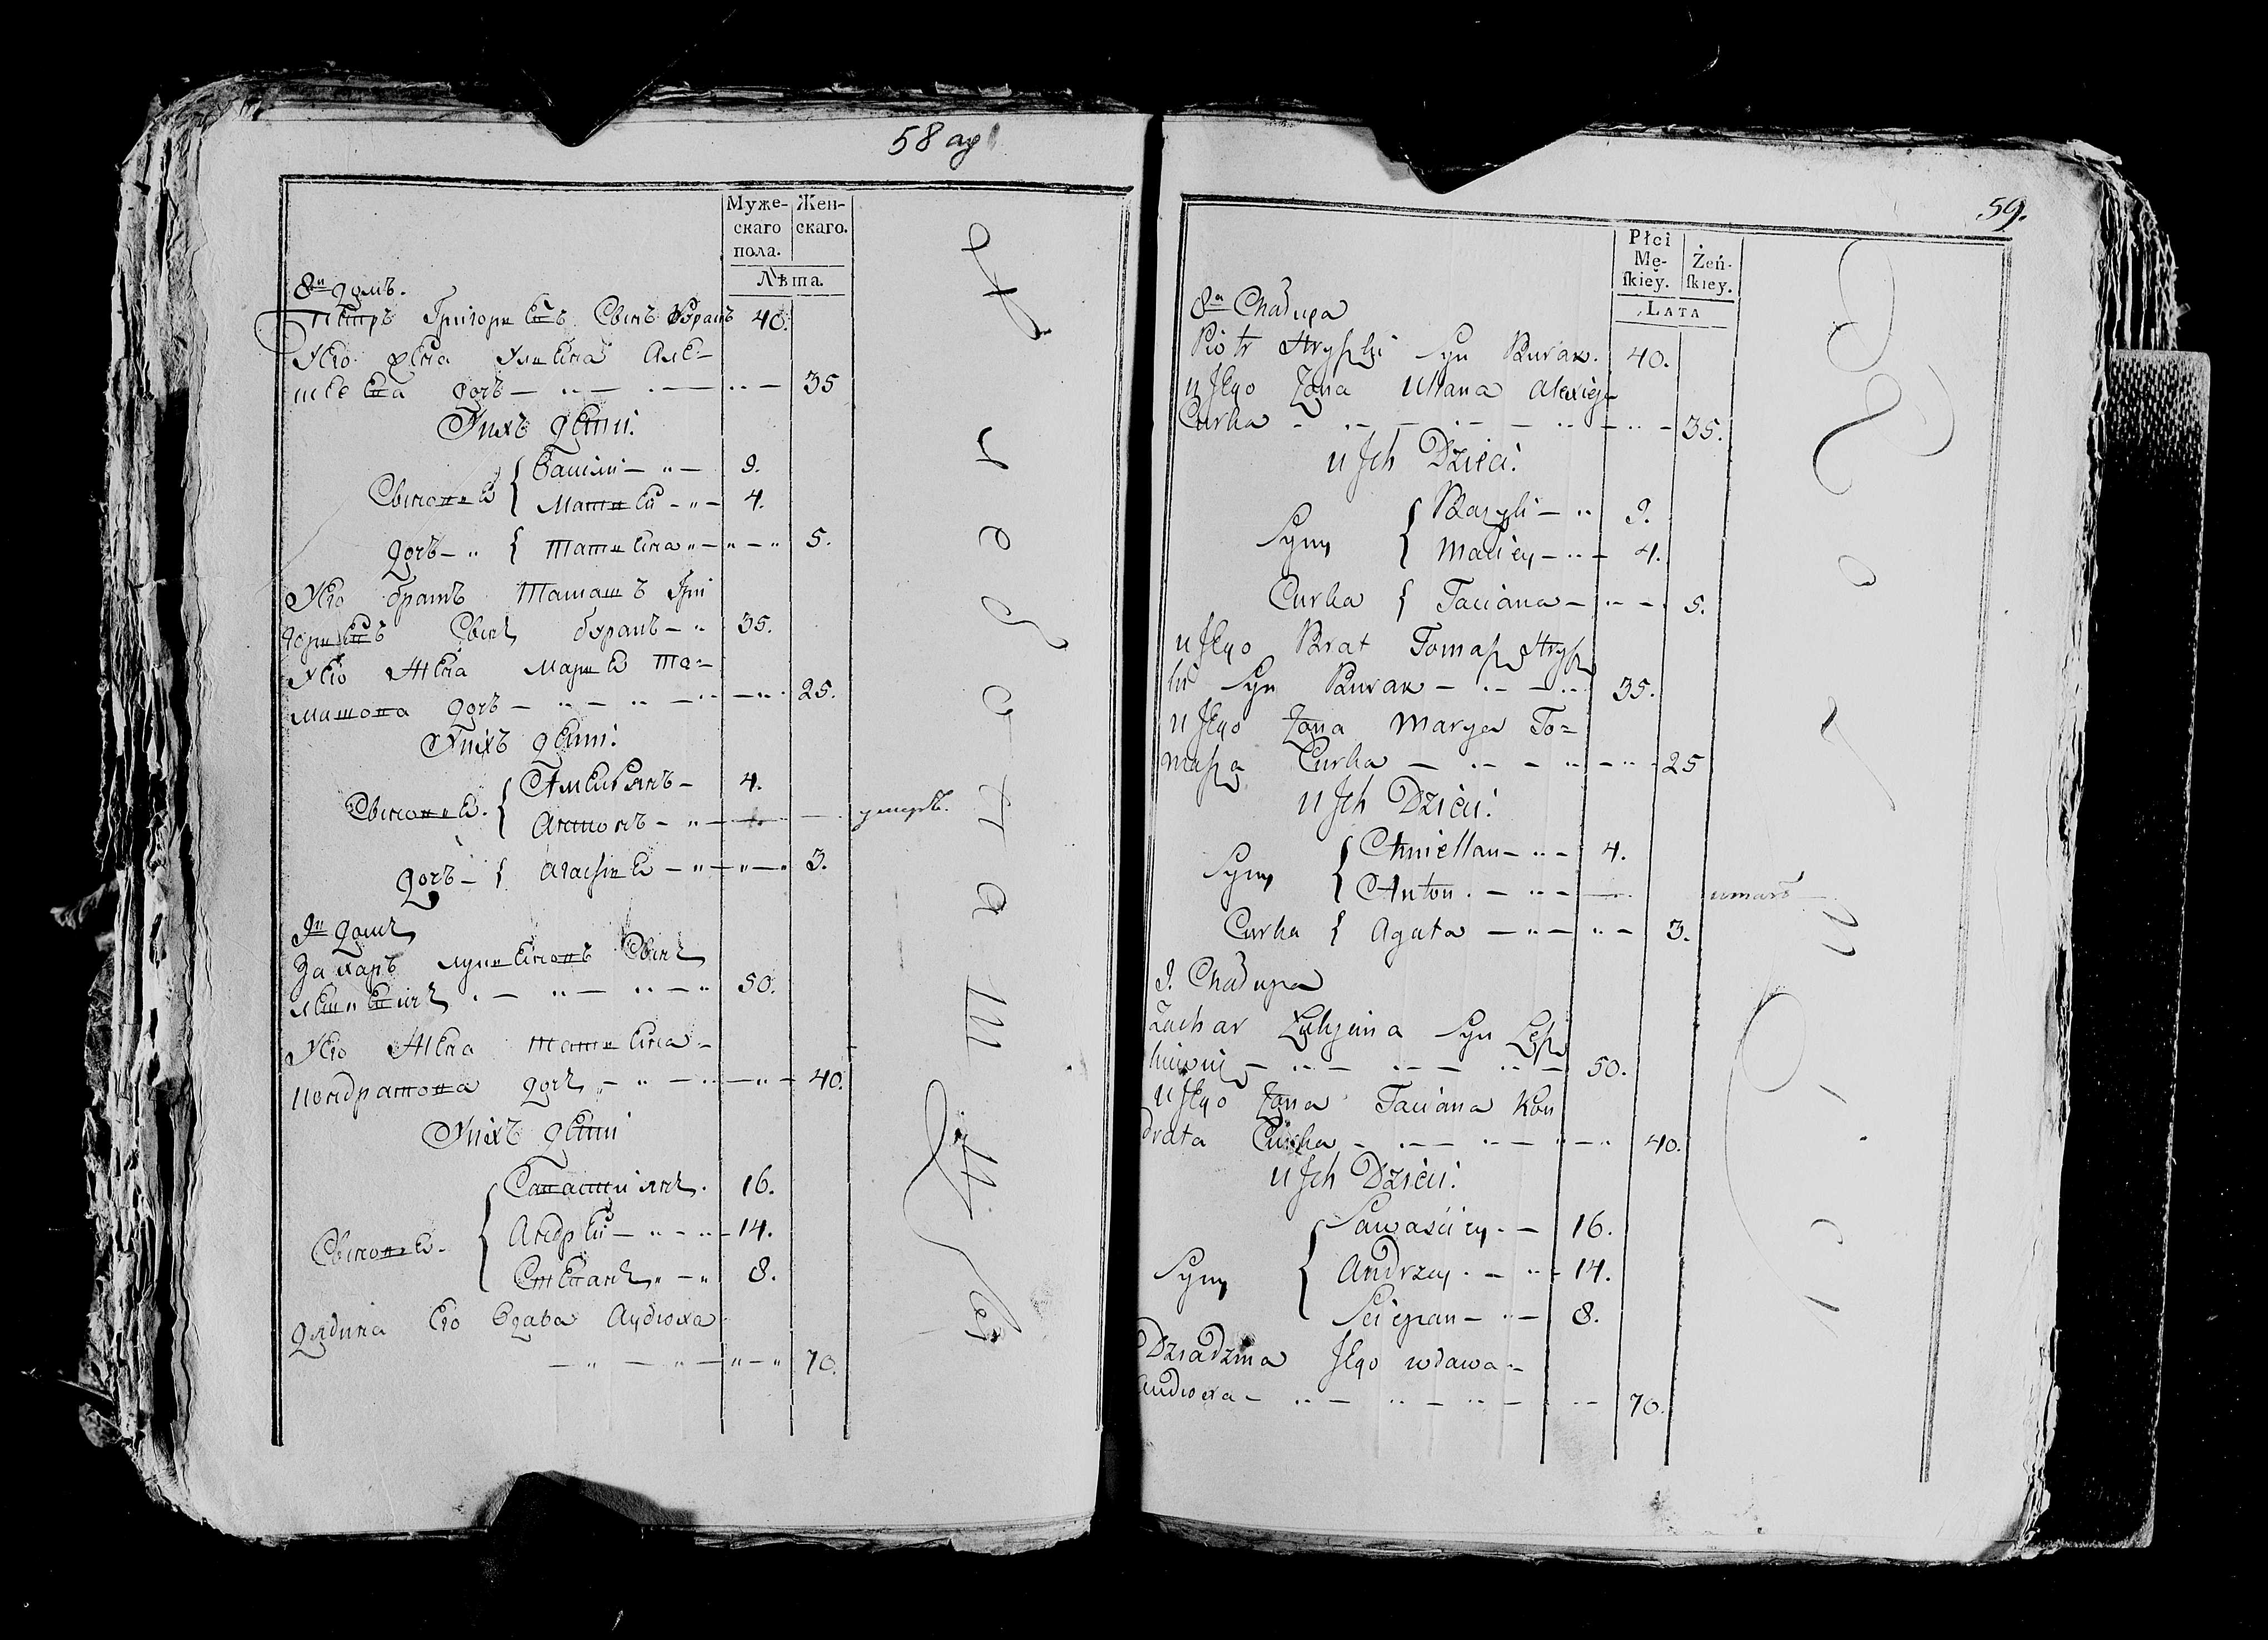 58 ар
Муже-
скаго
пола.
Жен-
скаго.
Лѣта.
8й домъ.
Петръ Григорьевъ Сынъ Буракъ 40.
Его жена Ульяна Алек-
дочь 35
У нихъ дети:
Сыновья
Василий 9.
Матвей 4.
дочь Татьяна 5.
Его братъ Томашъ Гри
горьевъ Сынъ буракъ 35.
Его жена Марья То-
машова дочь 25.
У нихъ дети:
Сыновья
Амельянъ 4.
Антонъ умеръ.
дочь Агафья 3.
9й домъ
Захаръ Сынъ
50.
Его жена Татьяна
кондратова дочь 40.
У нихъ дети
Сыновья
Савастиянъ 16.
Андрей 14.
Степанъ 8.
дядина его вдова Авдюха
70.
59.
Płci
Mę-
ſkiey.
Żeń-
ſkiey.
LATA
8a Chałupa
Piotr Hryſzki Syn Burak. 40.
u Jego Żona Ullana Alexieja
Curka 35.
u Jch Dzieci:
Syny
Bazyli 9.
Maciey 4.
Curka Taciana 5.
u Jego Brat Tomaſz Hryſz
ki Syn Burak 35.
u Jego Żona Marya To=
maſza Curka 25
u Jch Dzieci:
Syny
Amiellan 4.
Anton. umarł
Curka Agata 3.
9. Chałupa
Zachar Syn
50.
u Jego Żona Taciana Kon
drata Curka 40.
u Jch Dzieci:
Syny
Sawaściey 16.
Andrzey 14.
Sciepan 8.
Dziadzina Jego wdawa
Audwoxa 70.